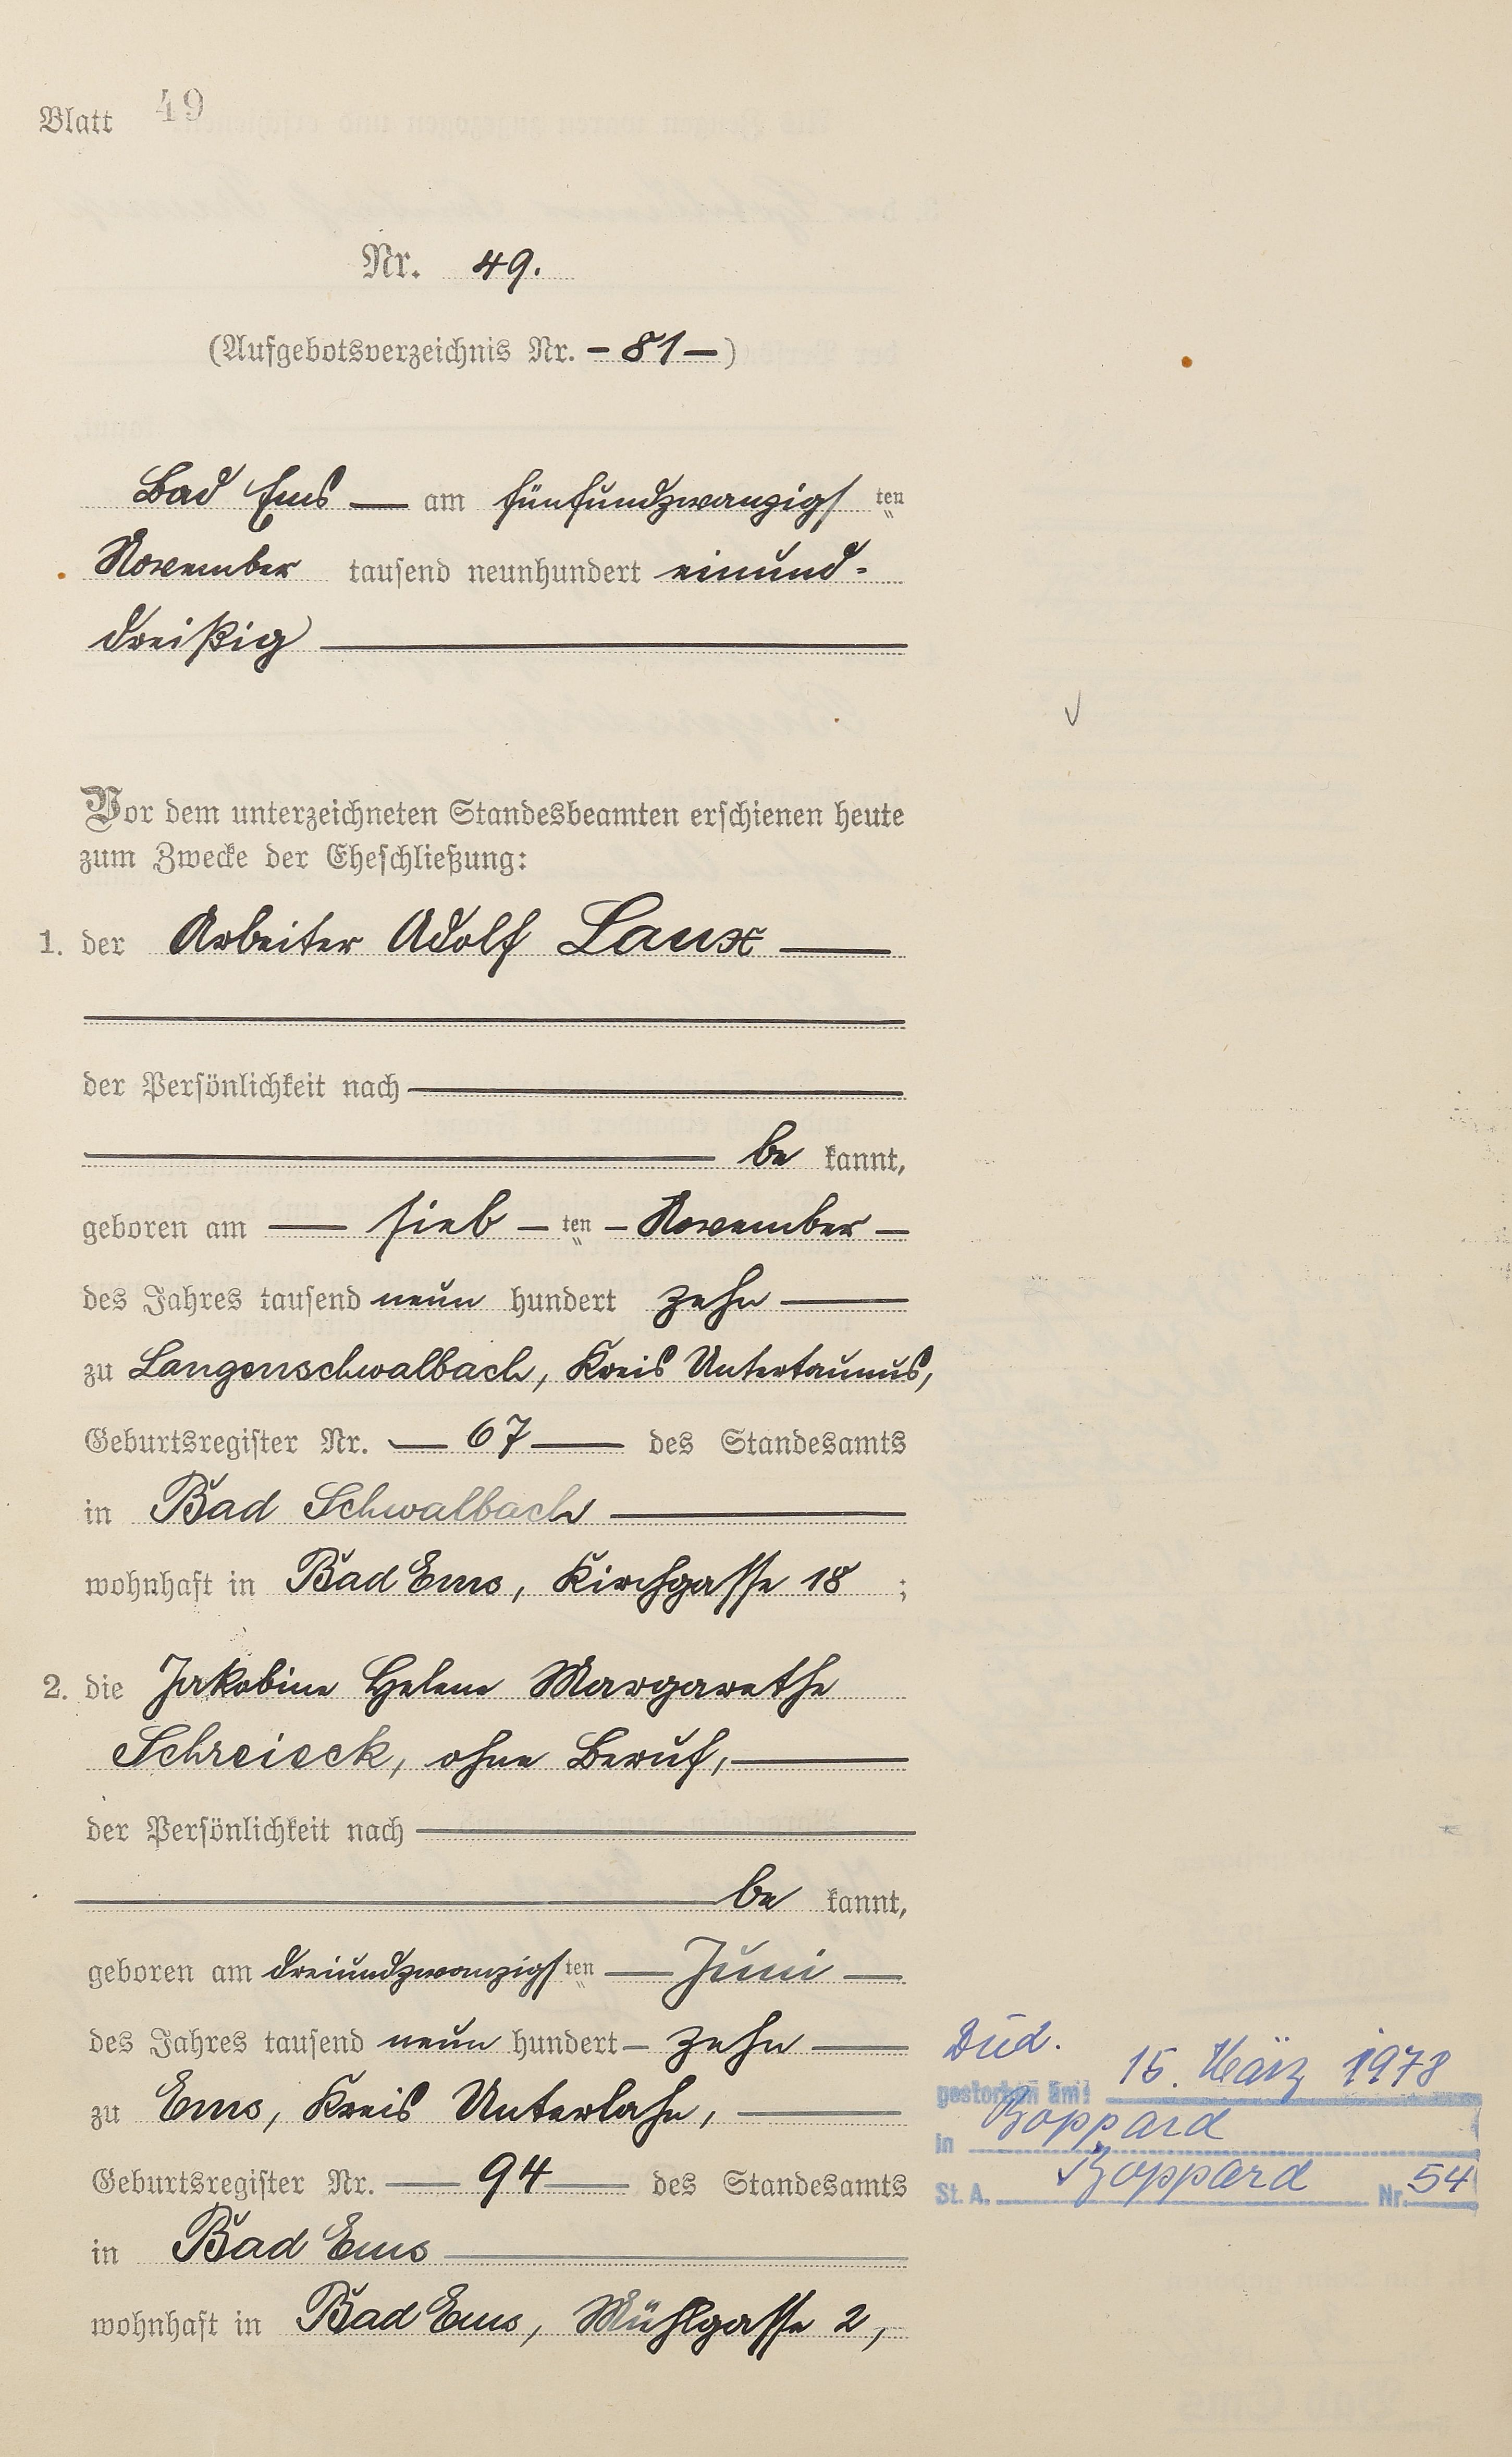 Blatt 49
Nr. 49.
(Aufgebotsverzeichnis Nr. - 81 - )
Bad Ems — am fünfundzwanzigs ten
November tausend neunhundert einund-
dreißig
Vor dem unterzeichneten Standesbeamten erschienen heute
zum Zwecke der Eheschließung:
1. der Arbeiter Adolf Laux —
der Persönlichkeit nach
be kannt,
geboren am — sieb - ten - November -
des Jahres tausend neun hundert zehn —
zu Langenschwalbach, Kreis Untertaunus,
Geburtsregister Nr. — 67 — des Standesamts
in Bad Schwalbach —
wohnhaft in Bad Ems, Kirchgasse 18 ;
2. die Jakobine Helene Margarethe
Schreieck, ohne Beruf, —
der Persönlichkeit nach
be kannt,
geboren am dreiundzwanzigs ten — Juni —
des Jahres tausend neun hundert - zehn —
zu Ems, Kreis Unterlahn, —
Geburtsregister Nr. — 94 — des Standesamts
in Bad Ems —
wohnhaft in Bad Ems, Mühlgasse 2,
gestorben am: 15. März 1978
in Boppard
St. A. Boppard Nr. 54